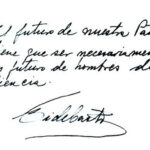 El futuro de nuestra Pa
iene que ser necesariamen
n futuro de hombres de
iencia.
Fidel Castro